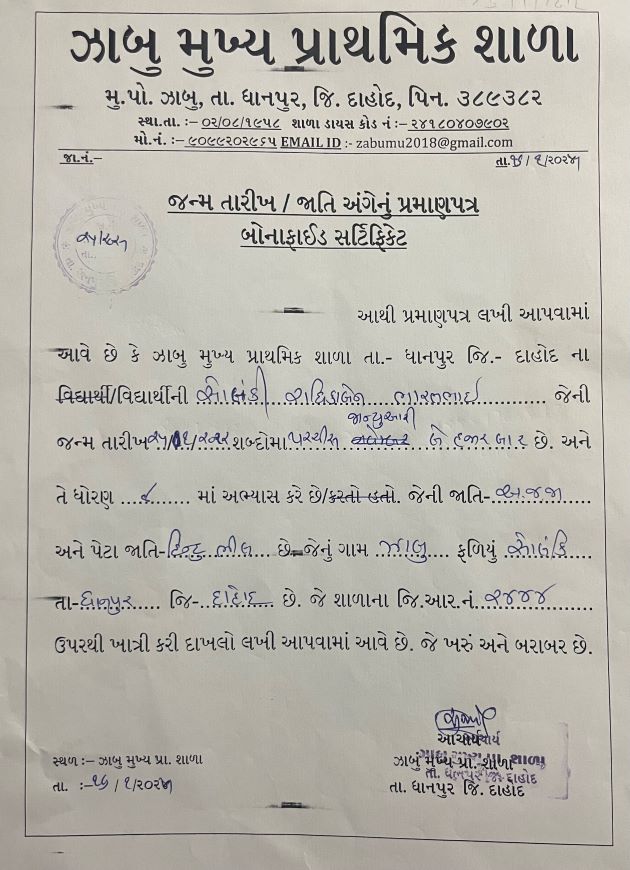 ઝાબુ મુખ્ય પ્રાથમિક શાળા
મુ.પો. ઝાબુ, તા. ધાનપુર, જિ. દાહોદ, પિન. ૩૮૯૩૮૨
સ્થા.તા. :– ૦૨/૦૮/૧૯૫૮ શાળા ડાયસ કોડ નં :– ૨૪૧૮૦૪૦૭૯૦૨
મો.નં. :– ૯૦૯૯૨૦૨૯૬૫ EMAIL ID :- zabumu2018@gmail.com
જા.નં.–
તા.૧૬/૧/૨૦૨૫
જન્મ તારીખ / જાતિ અંગેનું પ્રમાણપત્ર
બોનાફાઈડ સર્ટિફિકેટ
આથી પ્રમાણપત્ર લખી આપવામાં
આવે છે કે ઝાબુ મુખ્ય પ્રાથમિક શાળા તા.- ધાનપુર જિ.- દાહોદ ના
વિદ્યાર્થી/વિદ્યાર્થીની સોલંકી રાધિકાબેન ભારતભાઇ જેની
જાન્યુઆરી
જન્મ તારીખ ૨૫/૦૧/૨૦૧૨ શબ્દોમા પચ્ચીસ બે હજાર બાર છે. અને
તે ધોરણ ૮ માં અભ્યાસ કરે છે/કરતો હતો. જેની જાતિ-અ.જ.જા
અને પેટા જાતિ-હિન્દુ ભીલ છે. જેનું ગામ ઝાબુ ફળિયું સોલંકિ
તા-ધાનપુર જિ-દાહોદ છે. જે શાળાના જિ.આર.નં. ૨૪૪૪
ઉપરથી ખાત્રી કરી દાખલો લખી આપવામાં આવે છે. જે ખરું અને બરાબર છે.
આચાર્ય
સ્થળ :– ઝાબુ મુખ્ય પ્રા. શાળા
ઝાબુ મુખ્ય પ્રા. શાળા
તા. :–૧૬/૧/૨૦૨૫
તા. ધાનપુર જિ. દાહોદ